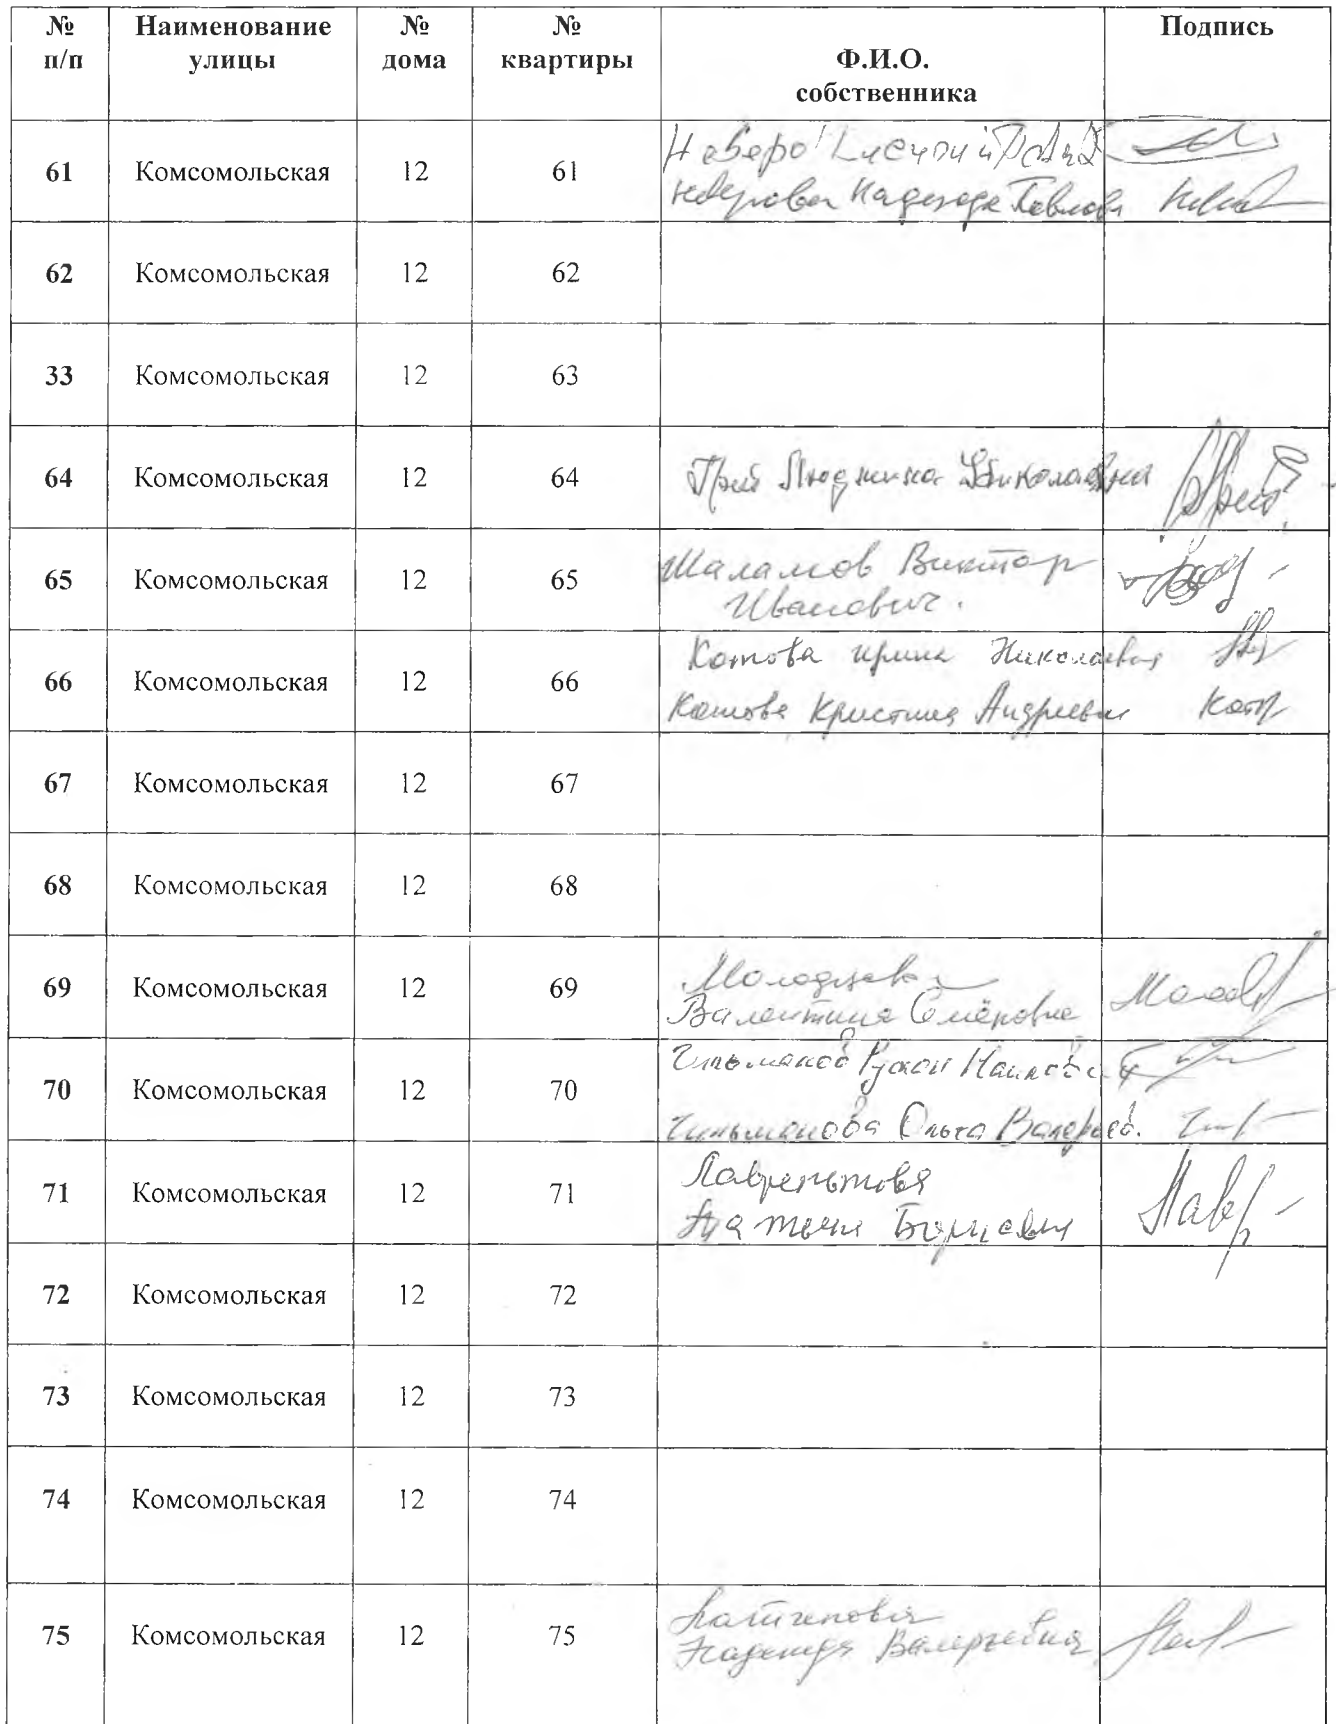 № п/п Наименование улицы № дома № квартиры Ф.И.О. собственника Подпись
61 Комсомольская 12 61
Надежда Павлов
62 Комсомольская 12 62
33 Комсомольская 12 63
64 Комсомольская 12 64 Людмила Николаевна
65 Комсомольская 12 65 Шаламов Виктор
Иванович.
66 Комсомольская 12 66 Котова Ирина Николаевна
Котова Кристина Андреевн Кот
67 Комсомольская 12 67
68 Комсомольская 12 68
69 Комсомольская 12 69
Валентина Семёновна
70 Комсомольская 12 70
Ольга Валерьев.
71 Комсомольская 12 71 Лаврентьева Лавр
Борисовна
72 Комсомольская 12 72
73 Комсомольская 12 73
74 Комсомольская 12 74
75 Комсомольская 12 75
Надежда Валерьевна